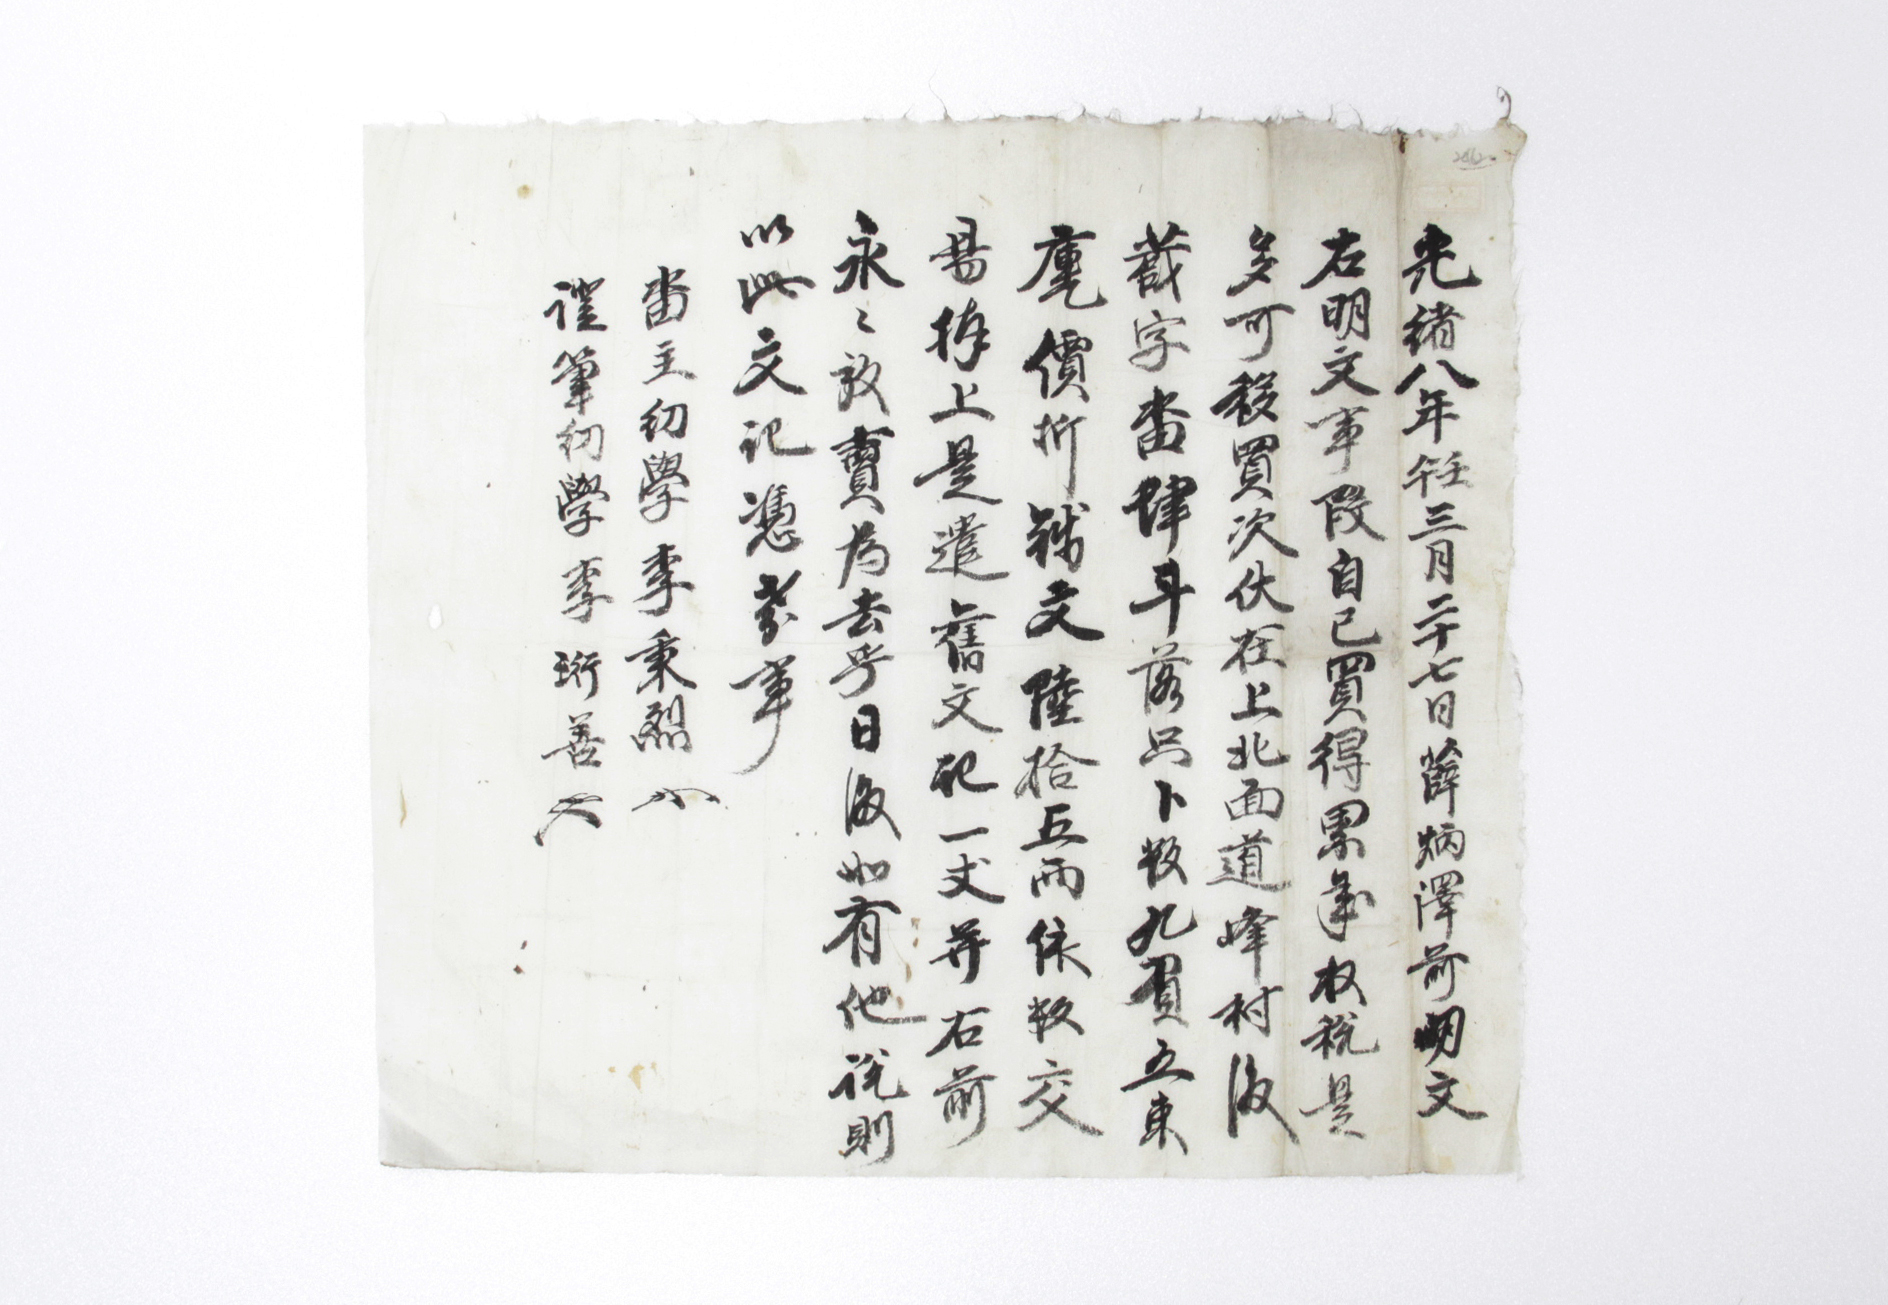 光緖八年壬午三月二十七日薛炳澤前明文
右明文事段自己買得累年收稅是
多可移買次伏在上北面道峰村後
蕺字畓肆斗落只卜數九負五束
庫乙價折錢文陸拾五兩依數交
易捧上是遣舊文記一丈幷右前
永〻放賣爲去乎日後如有他說則
以此文記憑考事
畓主幼學李秉烈
證筆幼學李珩善